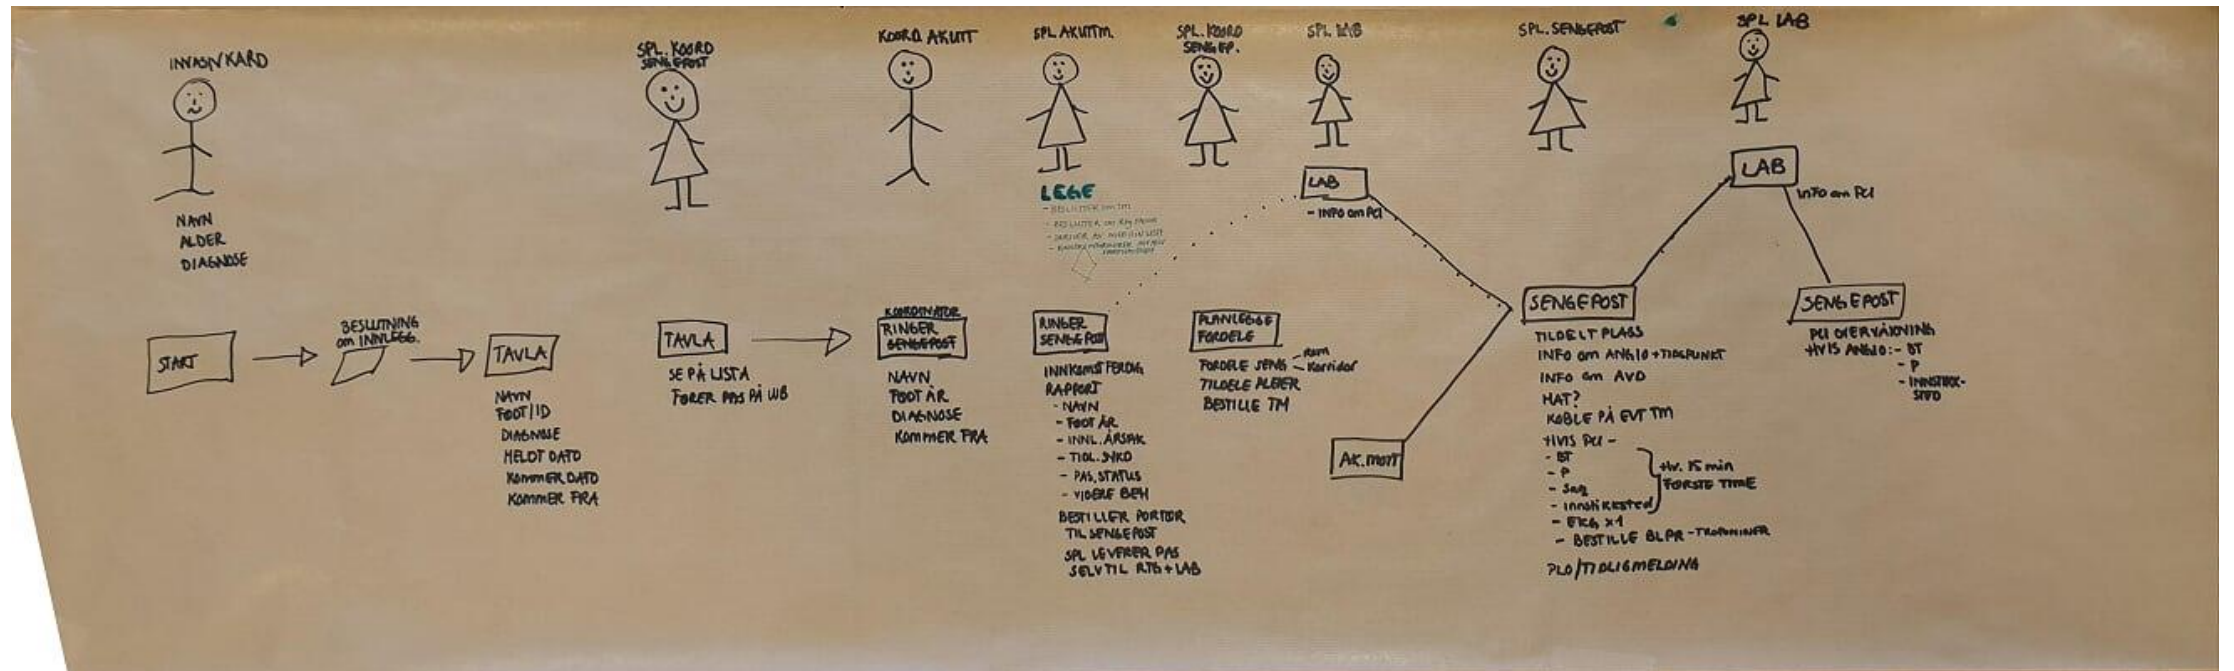 INVASIV KARD
NAVN
ALDER
DIAGNOSE
START
BESLUTNING
om INNLEGG.
TAVLA
NAVN
FØDT/ID
DIAGNOSE
MELDT DATO
KOMMER DATO
KOMMER FRA
SPL. KOORD
SENGEPOST
TAVLA
SE PÅ LISTA
FØRER PAS PÅ WB
KOORD AKUTT
KOORDINATOR
RINGER
SENGEPOST
NAVN
FØDT ÅR
DIAGNOSE
KOMMER FRA
SPL AKUTTM.
LEGE
- BESLUTTER om TM
RINGER
SENGEPOST
INNKOMST FERDIG
RAPPORT
- NAVN
- FØDT ÅR
- INNL. ÅRSAK
- TIDL. SYKD
- PAS. STATUS
- VIDERE BEH
BESTILLER PORTØR
TIL SENGEPOST
SPL LEVERER PAS
SELV TIL RTG + LAB
SPL. KOORD
SENGEP.
PLANLEGGE
FORDELE
FORDELE SENG - Rom
- Korridor
TILDELE PLEIER
BESTILLE TM
SPL LAB
LAB
- INFO om PCI
AK. MOTT
SPL. SENGEPOST
SENGEPOST
TILDELT PLASS
INFO om ANGIO + TIDSPUNKT
INFO om AVD
MAT?
KOBLE PÅ EVT TM
HVIS PCI -
- BT
- P
- Innstikksted
Hv. 15 min
FØRSTE TIME
- EKG x1
- BESTILLE BLPR - TROPONINER
PLO/TIDLIGMELDING
SPL LAB
LAB
INFO om PCI
SENGEPOST
PCI OVERVÅKNING
HVIS ANGIO: - BT
- P
- INNSTIKK-
STED